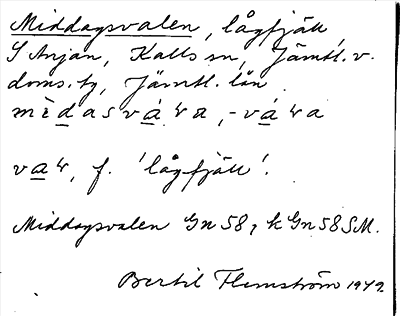 Middagsvalen, lågfjäll,
S Anjan, Kalls sn, Jämtl. v.
doms.tg, Jämtl. län.
mèdasvá̱ɽa, -vá̱ɽa
va̱ɽ, f. 'lågfjäll'.
Middagsvalen Gn 58, k Gn 58 SM.
Bertil Flemström 1942